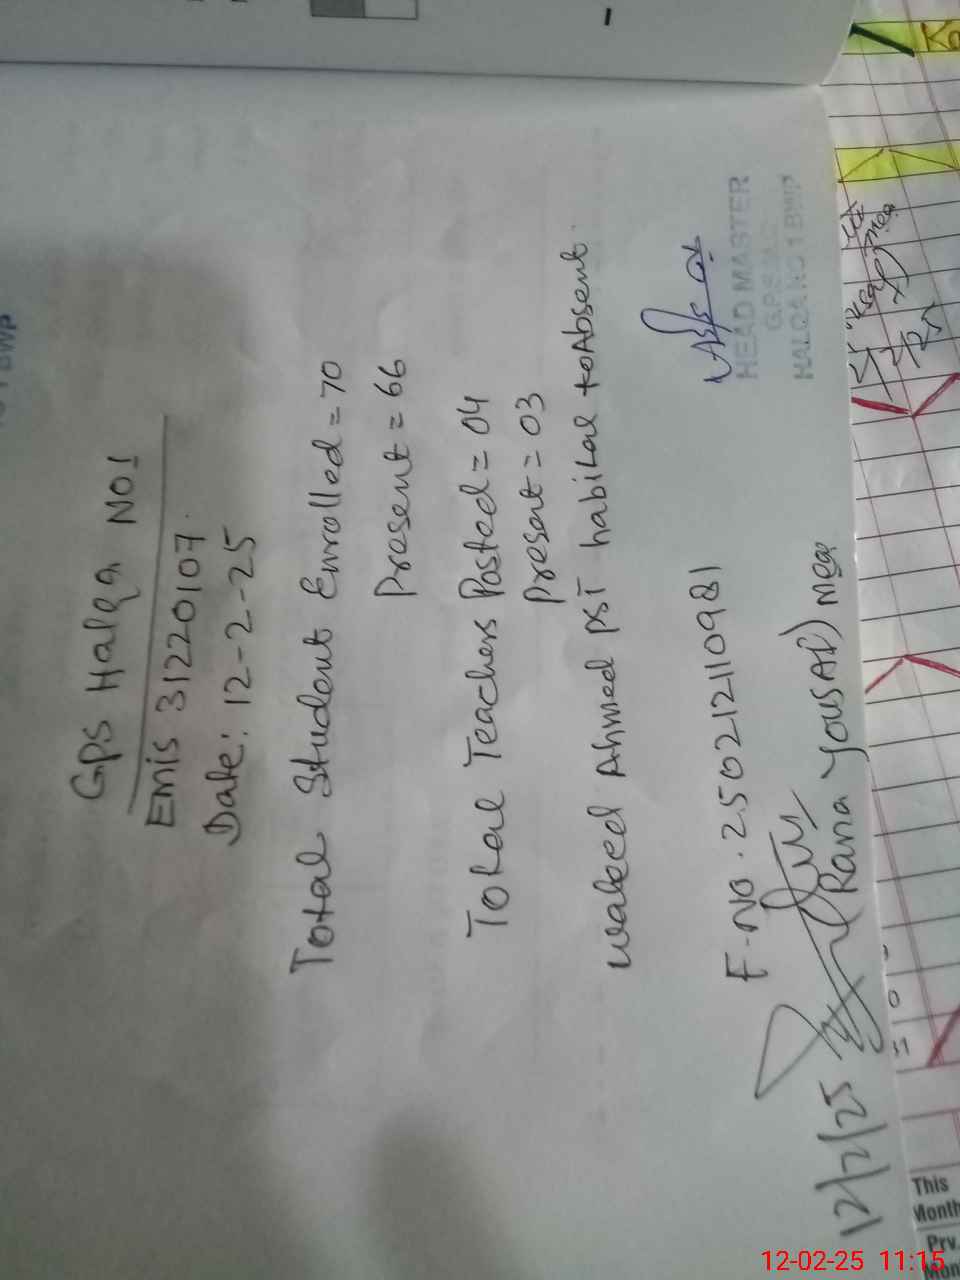 GPS Halqa NO1
Emis 31220107.
Date: 12-2-25
Total Student Enrolled = 70
Present = 66
Total Teachers Posted = 04
Present = 03
Waheed Ahmed PST habitat to Absent.
F.No. 250212110981
HEAD MASTER
HALQA NO 1 BWP
(Rana yousAf) mea
12/2/25
This
Month
Prv.
Mon
12-02-25 11:15